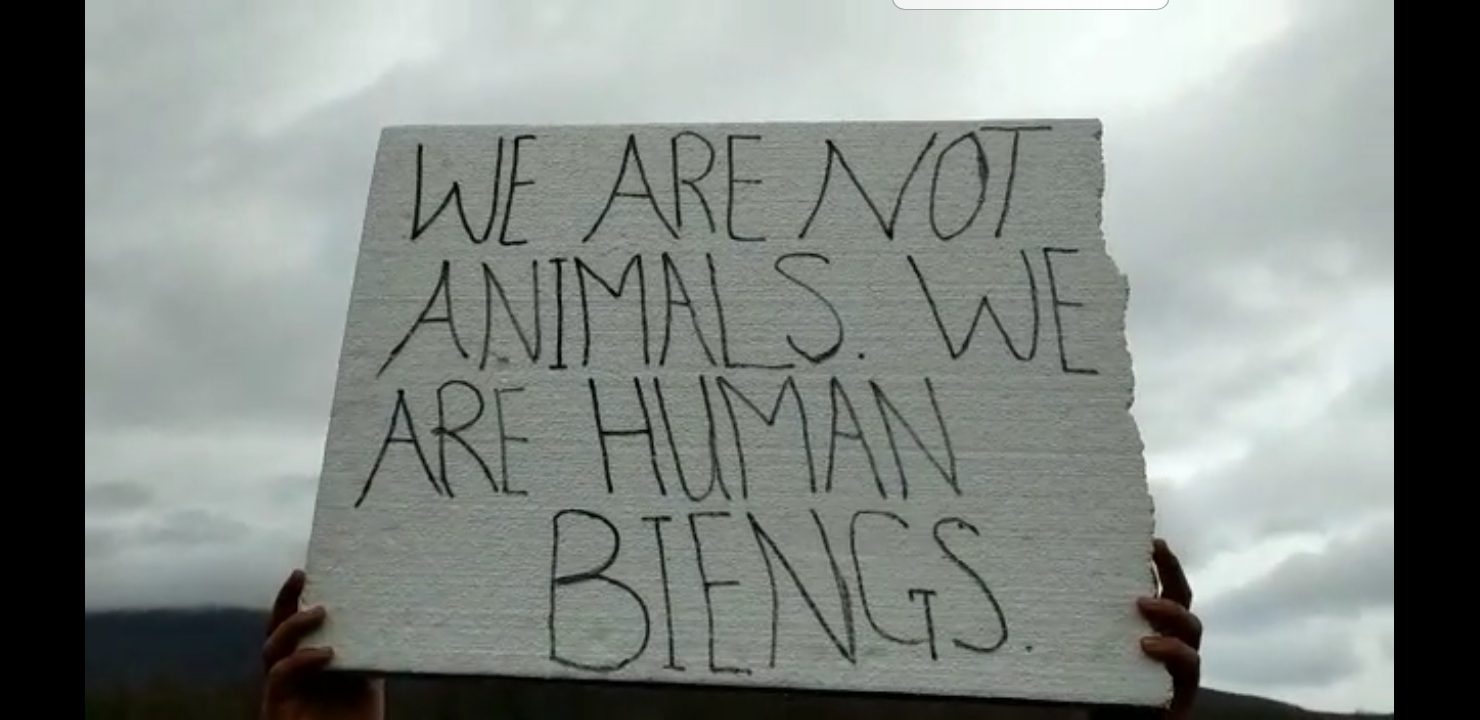 WE ARE NOT
ANIMALS. WE
ARE HUMAN
BIENGS.